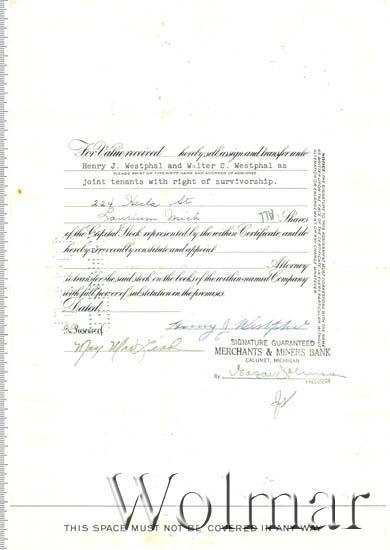 For Value received hereby sell, assign and transfer unto
Henry J. Westphal and Walter C. Westphal as
PLEASE PRINT OR TYPEWRITE NAME AND ADDRESS OF ASSIGNEE
joint tenants with right of survivorship.
224 Hecla St
Laurium Mich
Shares
of the Capital Stock represented by the within Certificate, and do
hereby irrevocably constitute and appoint
Attorney
to transfer the said stock on the books of the within-named Company
with full power of substitution in the premises.
Dated
In Presence of
Henry J. Westphal
SIGNATURE GUARANTEED
MERCHANTS & MINERS BANK
CALUMET, MICHIGAN
By
NOTICE: THE SIGNATURE TO THIS ASSIGNMENT MUST CORRESPOND WITH THE NAME
AS WRITTEN UPON THE FACE OF THE CERTIFICATE, IN EVERY PARTICULAR, WITHOUT
ALTERATION OR ENLARGEMENT, OR ANY CHANGE WHATEVER.
Wolmar
THIS SPACE MUST NOT BE COVERED IN ANY WAY